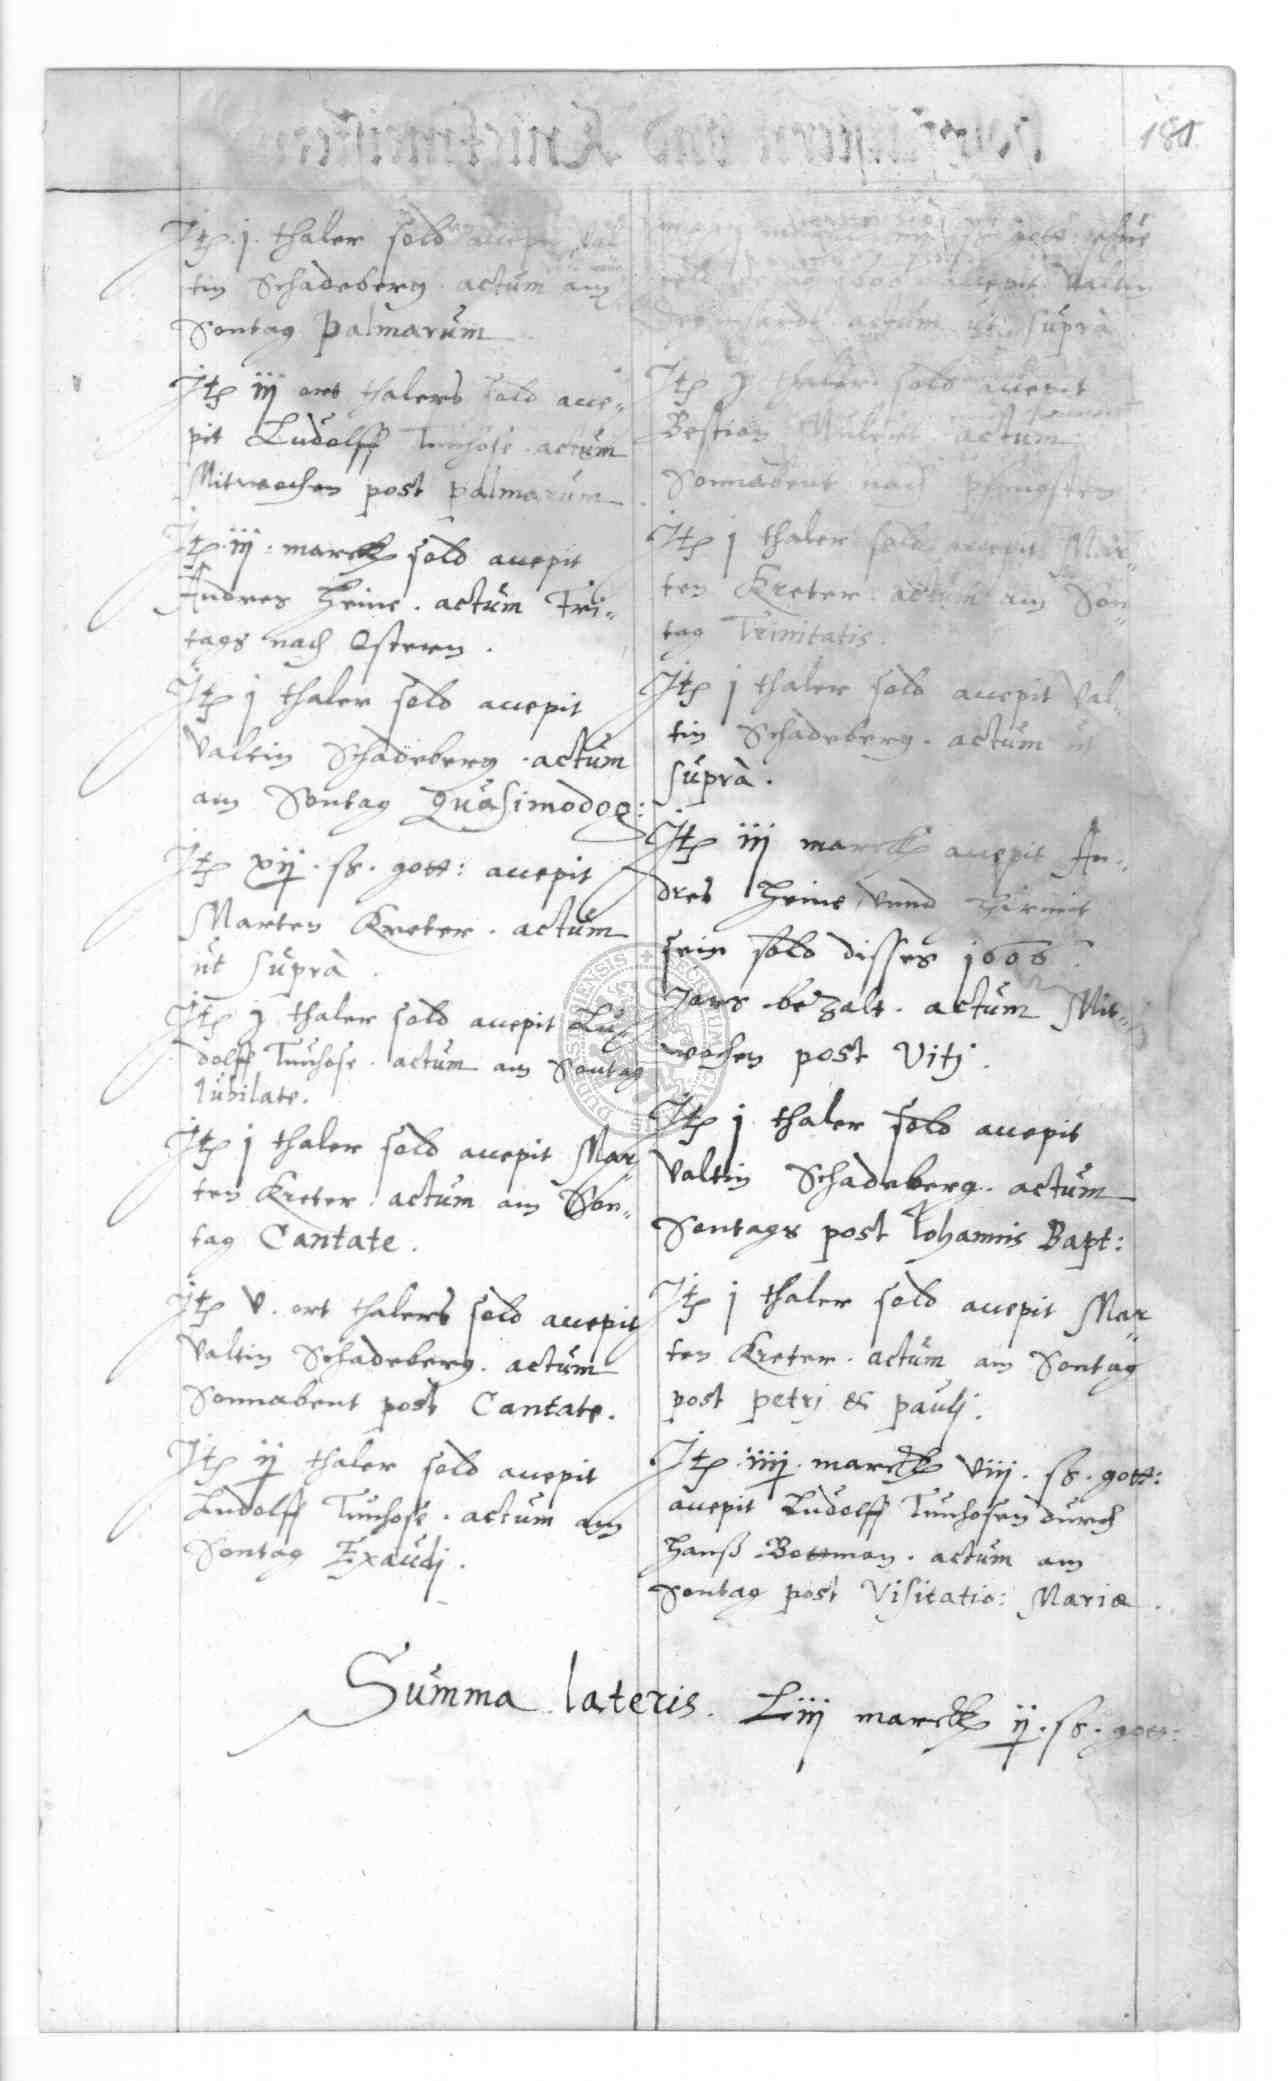 181.
Jtem j thaler sold accepit Val
tin Schadeberg. actum am
Sontag Palmarum
Jtem iij ort thalers sold acce-
pit Ludolff Tunhose. actum
Mitwochen post palmarum
Jtem iij. marck sold accepit
Andres Heine. actum Fri-
tags nach Ostern.
Jtem j thaler sold accepit
Valtin Schadeberg. actum
am Sontag Quasimodog:
Jtem xij. ss. gott: accepit
Marten Kreter. actum
ut supra.
Jtem j thaler sold accepit Lu-
dolff Tunhose. actum am Sontag
Iubilate.
Jtem j thaler sold accepit Mar
ten Kreter. actum am Son-
tag Cantate.
Jtem v. ort thalers sold accepit
Valtin Schadeberg. actum
Sonnabent post Cantate.
Jtem ij thaler sold accepit
Ludolff Tunhose. actum am
Sontag Exaudj.
gott:
accepit Valtin
actum ut supra
Jtem j thaler sold accepit
Bestian actum
Sonnabent nach Pfingsten
Jtem j thaler sold accepit Mar-
ten Kreter. actum am Son-
tag Trinitatis.
Jtem j thaler sold accepit Val-
tin Schadeberg. actum ut
supra.
Jtem iij marck accepit An-
dres Heine, vnnd hirmit
sein sold disses 1606.
Jars bezalt. actum Mit-
wochen post Vitj.
Jtem j thaler sold accepit
Valtin Schadeberg. actum
Sontags post Iohannis Bapt:
Jtem j thaler sold accepit Mar
ten Kreter. actum am Sontag
post petrj et paulj.
Jtem iiij. marck viij. ss. gott:
accepit Ludolff Tunhosen durch
Hanß Bottman. actum am
Sontag post Visitatio: Mariæ.
Summa lateris. Liij marck ij. ss. gott: